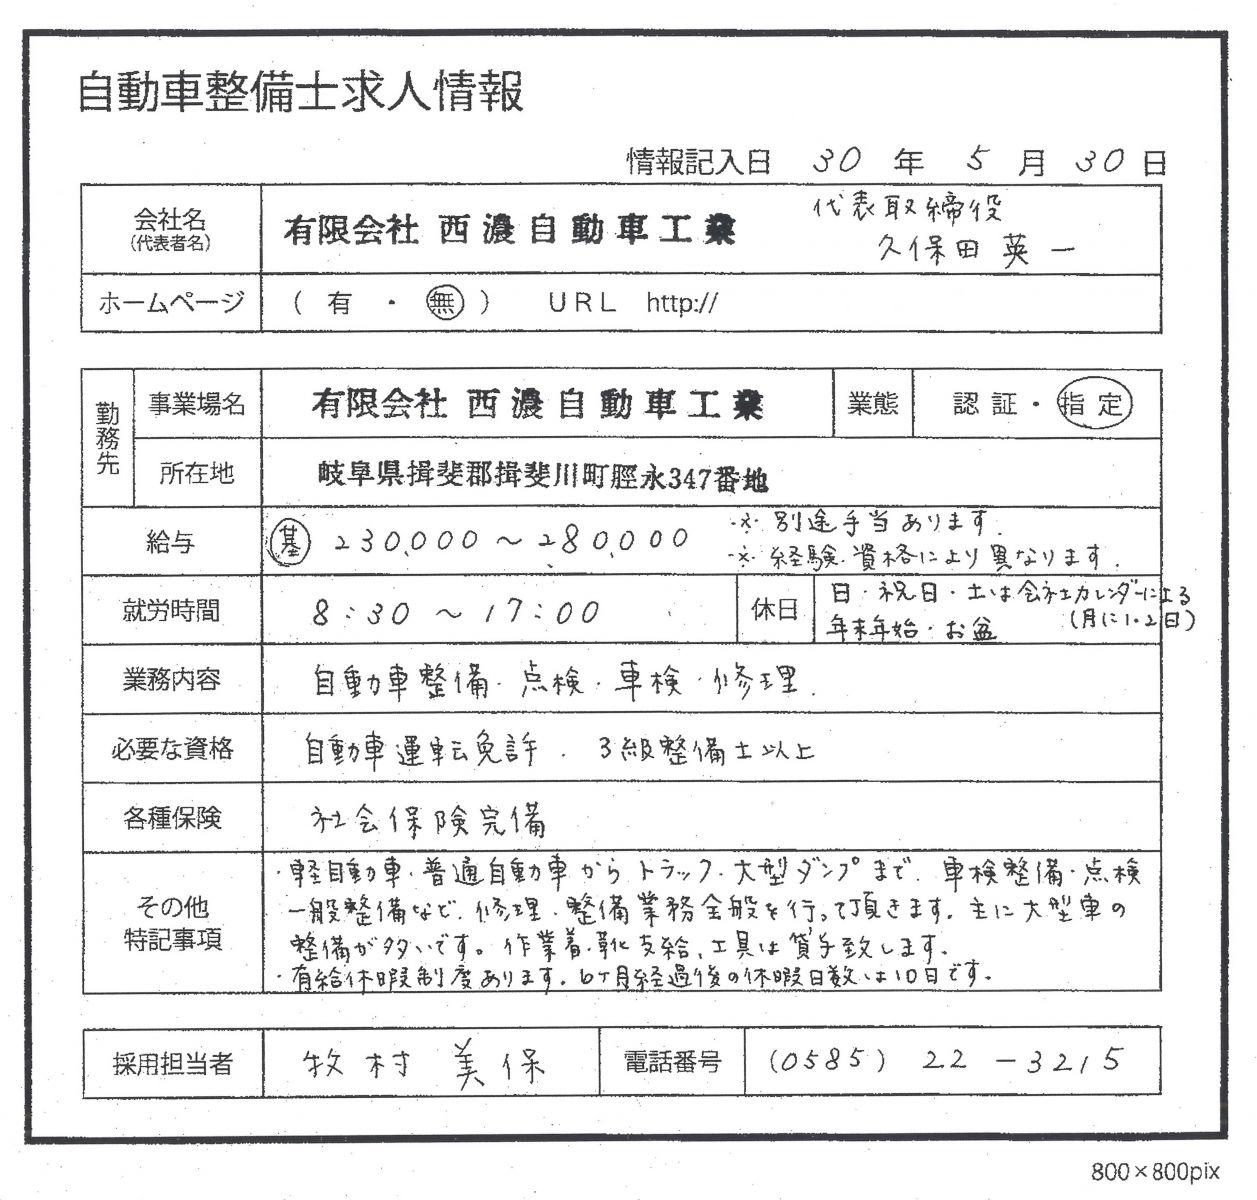 自動車整備士求人情報
情報記入日 30 年 5 月 30 日
会社名
(代表者名)
有限会社 西濃自動車工業
代表取締役
久保田 英一
ホームページ
( 有 ・ 無 ) URL http://
勤務先
事業場名
有限会社 西濃自動車工業
業態
認証・指定
所在地
岐阜県揖斐郡揖斐川町脛永347番地
給与
基 230,000 〜 280,000
※別途手当あります.
※経験・資格により異なります.
就労時間
8:30 〜 17:00
休日
日・祝日・土は会社カレンダーによる
(月に1.2日)
年末年始・お盆
業務内容
自動車整備・点検・車検・修理.
必要な資格
自動車運転免許. 3級整備士以上
各種保険
社会保険完備
その他
特記事項
・軽自動車・普通自動車からトラック・大型ダンプまで.車検整備・点検
一般整備など.修理.整備業務全般を行って頂きます.主に大型車の
整備が多いです。作業着・靴支給、工具は貸与致します.
・有給休暇制度あります.6ヶ月経過後の休暇日数は10日です.
採用担当者
牧村 美保
電話番号
(0585) 22 -3215
800×800pix